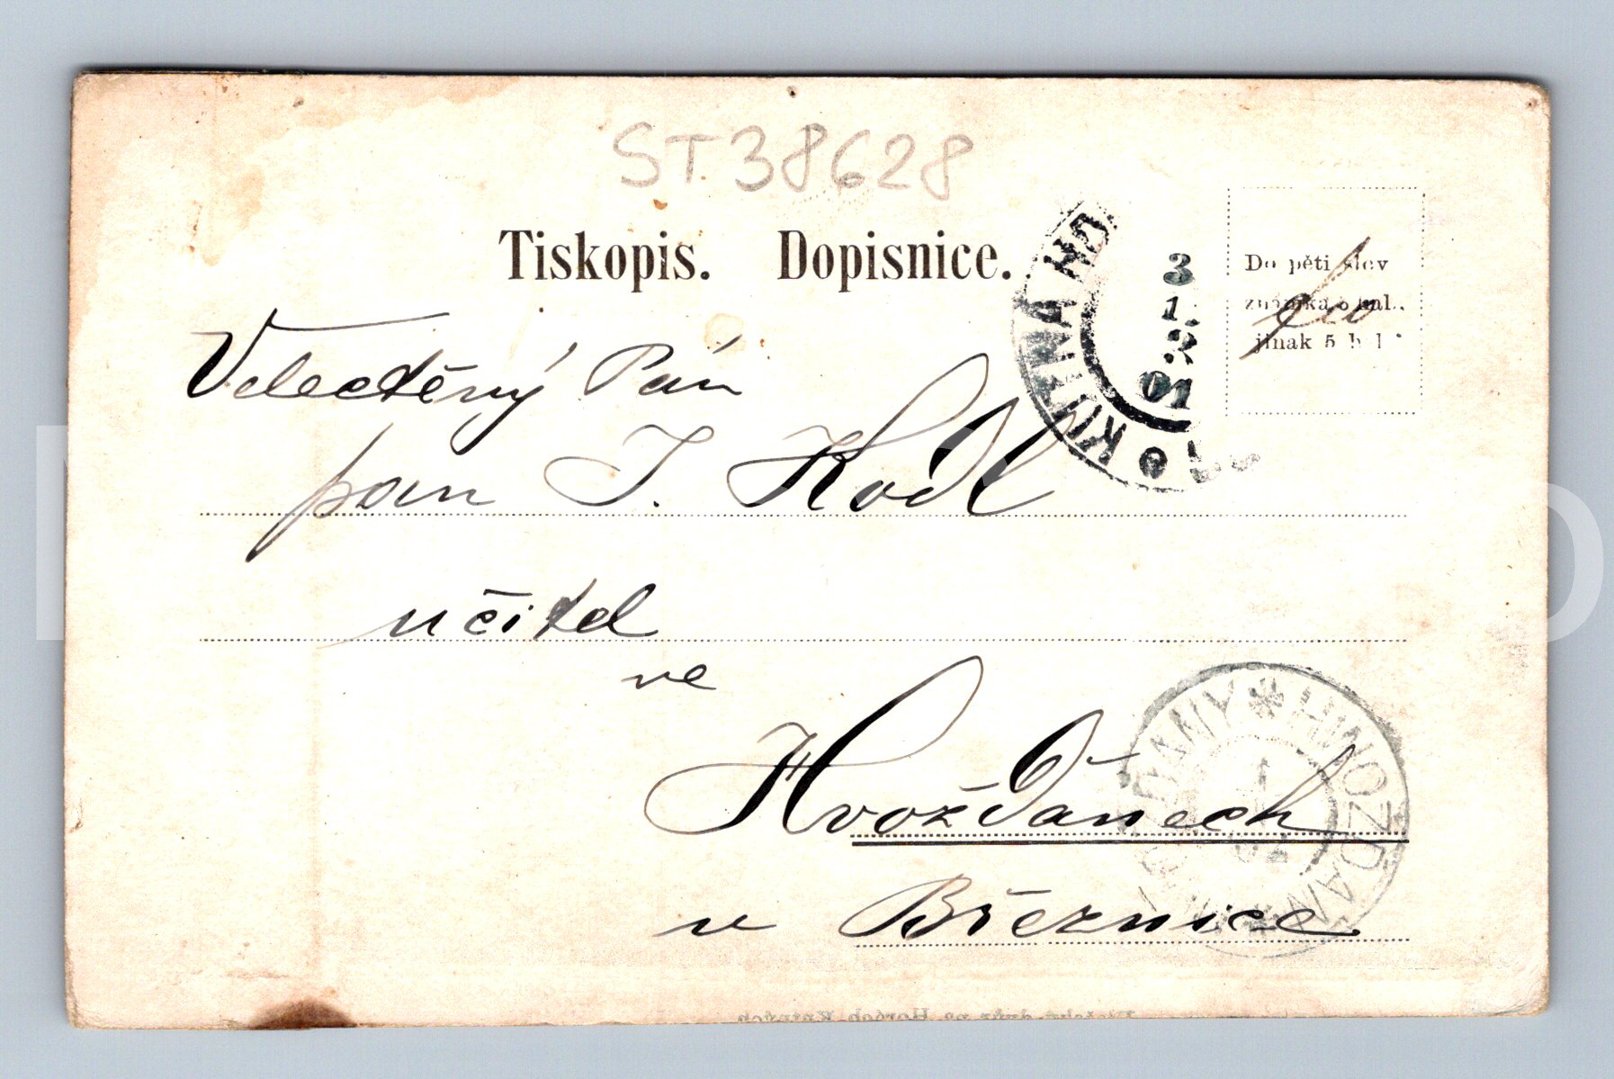 ST. 38628
Tiskopis. Dopisnice.
KUTNÁ HO
3
1
01
Do pěti slov
známka 3 hal.
jinak 5 h
Velectěný Pán
pan J. Kodl
učitel
ve
Hvožďanech
v Březnice
HVOŽĎANY * HVOŽĎAN